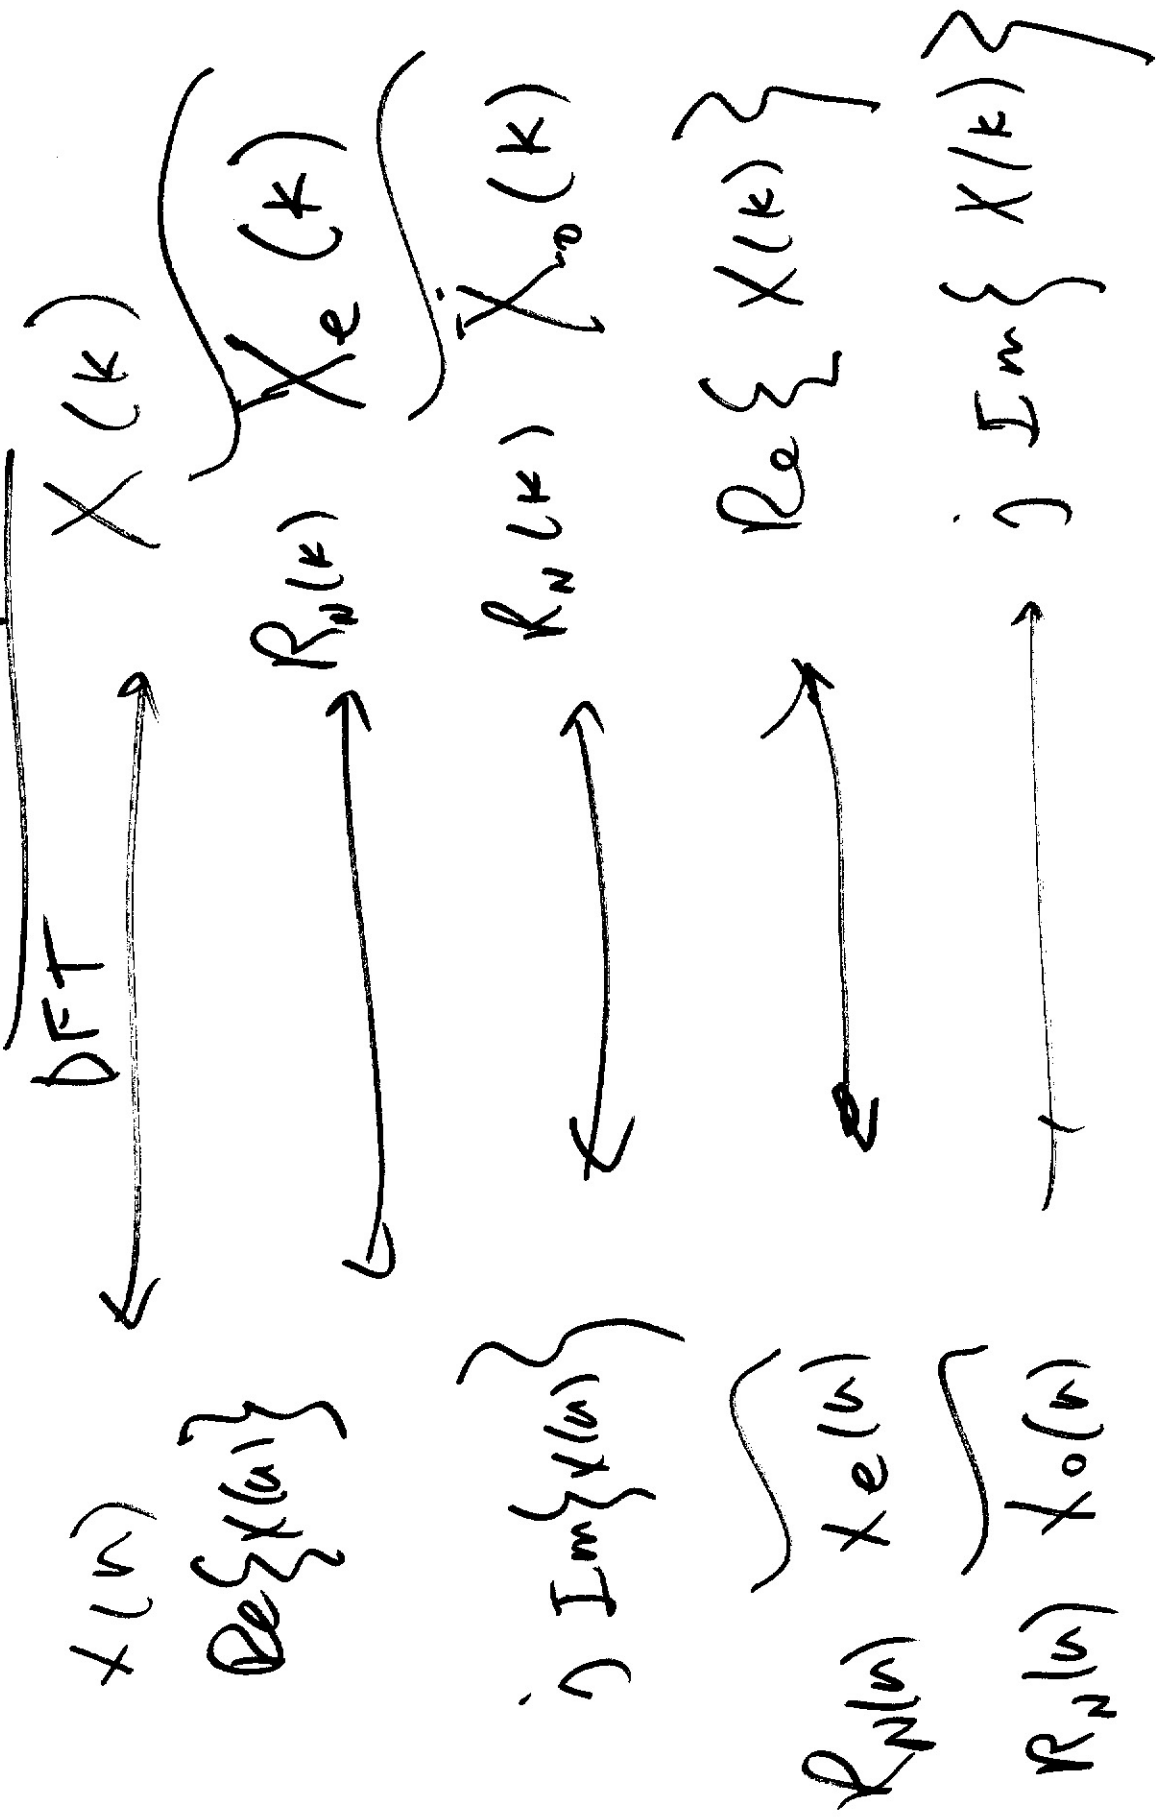 DFT
x(n) ⟷ X(k)
Re{x(n)} ⟷ R_N(k) X̃e(k)
j Im{x(n)} ⟷ R_N(k) X̃o(k)
R_N(n) x̃e(n) ⟷ Re{X(k)}
R_N(n) x̃o(n) ⟷ j Im{X(k)}